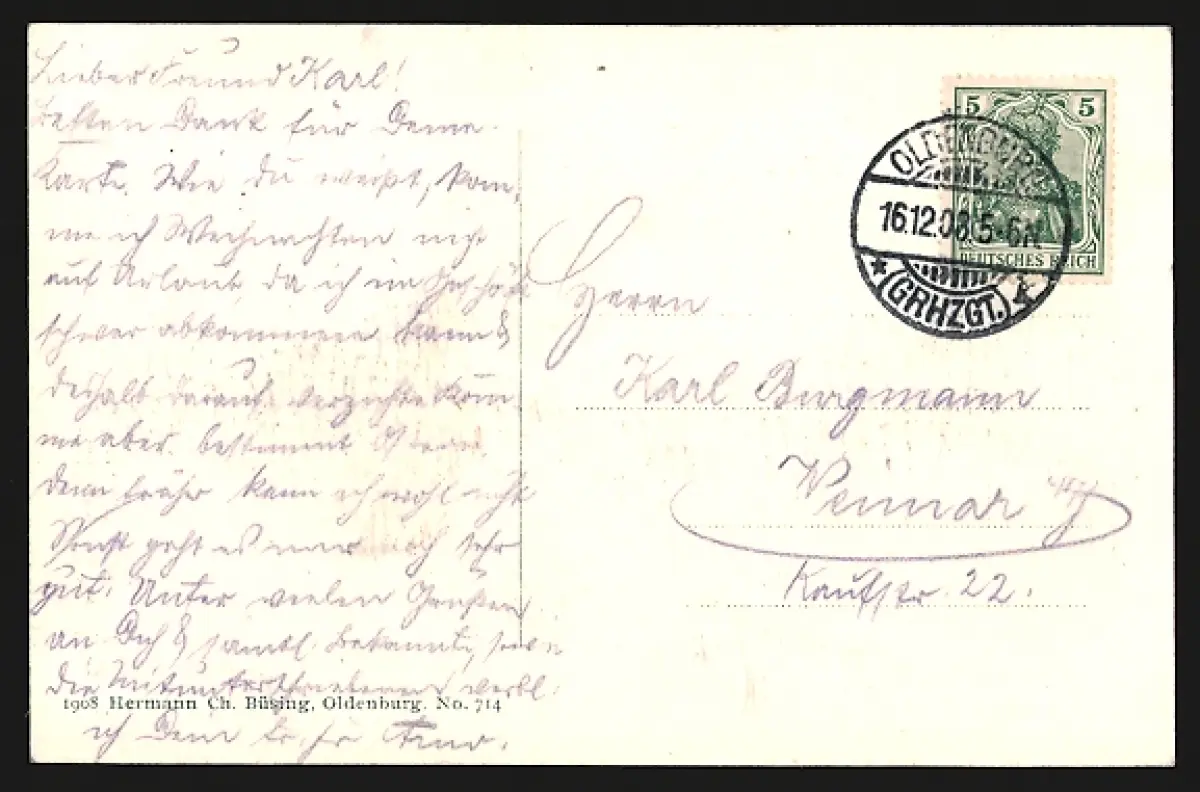 Lieber Freund Karl!
Besten Dank für Deine
Karte. Wie Du weißt, kom-
me ich Weihnachten nicht
auf Urlaub, da ich im Geschäft
schwer abkommen kann &
deshalb darauf verzichte. Kom-
me aber bestimmt Ostern,
denn früher kann ich wohl nicht
Sonst geht es mir noch sehr
gut. Unter vielen Grüßen
an Dich & sämtl. Bekannte, sowie
die Mitunterschriebenen verbl.
ich Dein tr. Fr. Arno.
1908 Hermann Ch. Büsing, Oldenburg. No. 714
5 5
DEUTSCHES REICH
OLDENBURG
16.12.08.5-6N.
* (GRHZGT.) *
Herrn
Karl Burgmann
Weimar
Kaufstr. 22.